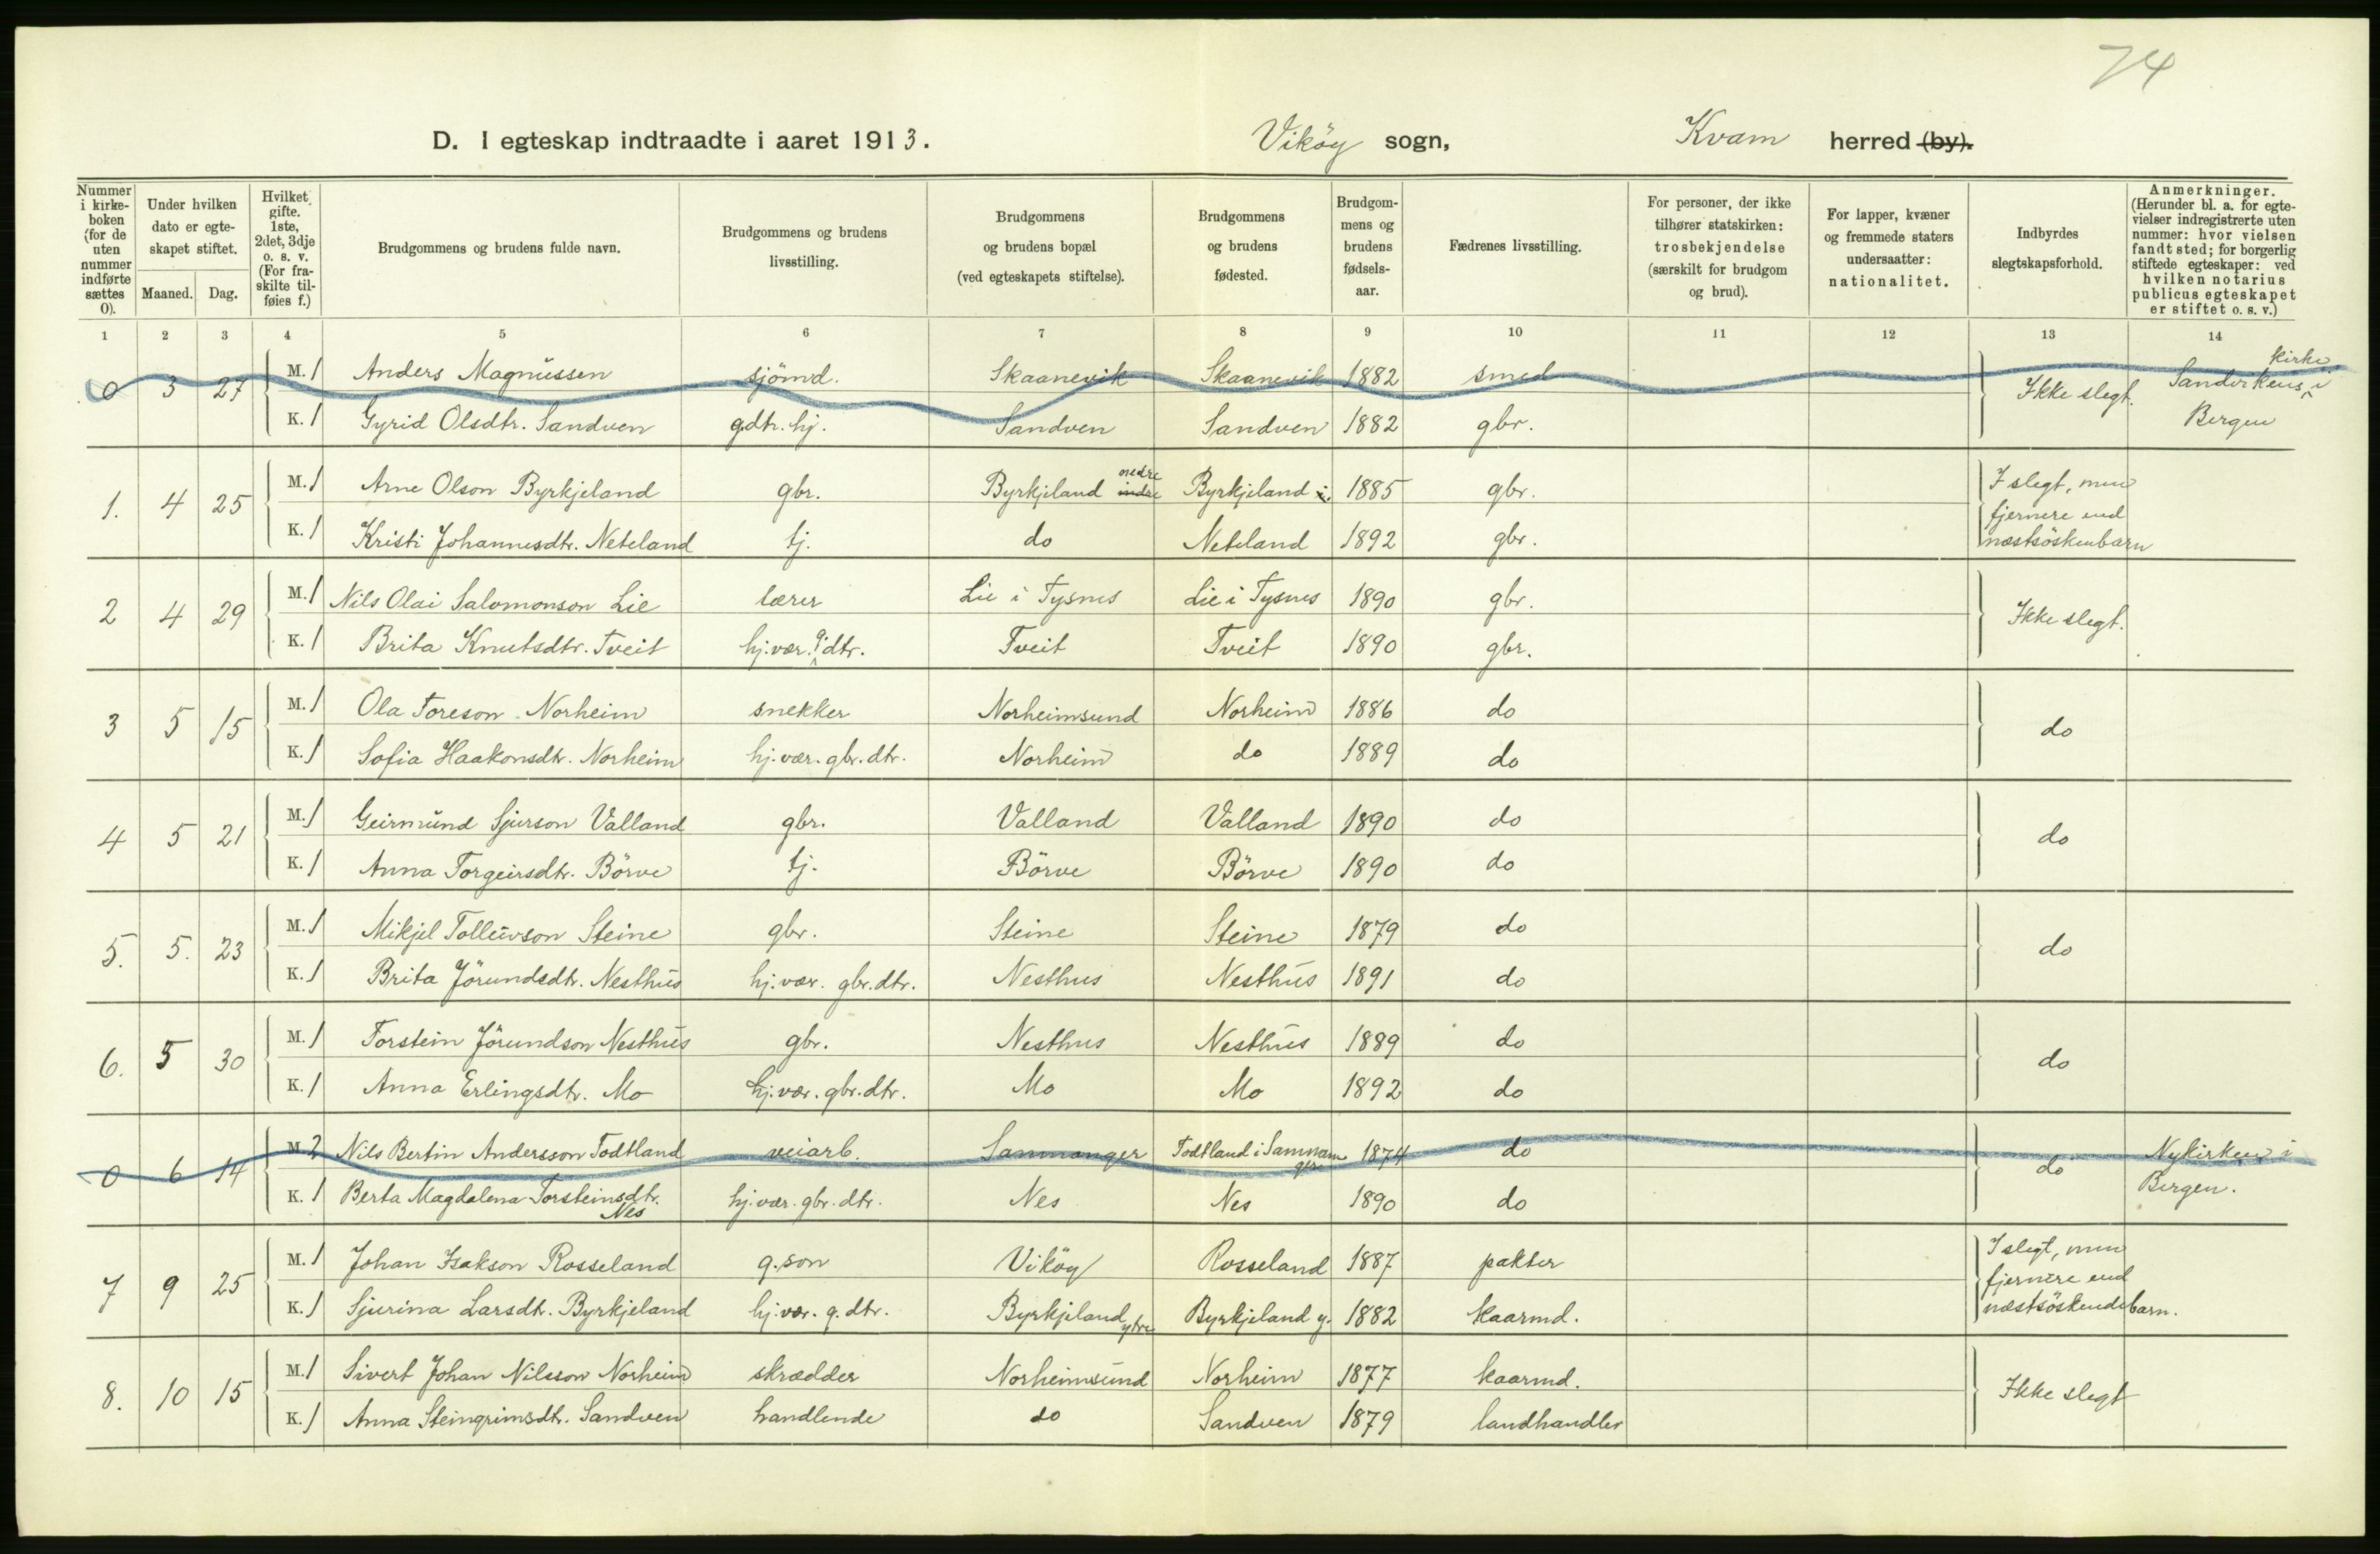 74
D. I egteskap indtraadte i aaret 1913. Viköy sogn, Kvam herred (by).
Nummer i kirkeboken (for de uten nummer indførte sættes 0).
Under hvilken dato er egteskapet stiftet.
Maaned. Dag.
Hvilket gifte. 1ste, 2det, 3dje o. s. v. (For fraskilte tilføies f.)
Brudgommens og brudens fulde navn.
Brudgommens og brudens livsstilling.
Brudgommens og brudens bopæl (ved egteskapets stiftelse).
Brudgommens og brudens fødested.
Brudgommens og brudens fødselsaar.
Fædrenes livsstilling.
For personer, der ikke tilhører statskirken: trosbekjendelse (særskilt for brudgom og brud).
For lapper, kvæner og fremmede staters undersaatter: nationalitet.
Indbyrdes slegtskapsforhold.
Anmerkninger. (Herunder bl. a. for egtevielser indregistrerte uten nummer: hvor vielsen fandt sted; for borgerlig stiftede egteskaper: ved hvilken notarius publicus egteskapet er stiftet o. s. v.)
1 2 3 4 5 6 7 8 9 10 11 12 13 14
0 3 27 M. 1 Anders Magnussen sjömd. Skaanevik Skaanevik 1882 smed Ikke slegt. Sandvikens kirke i
K. 1 Gyrid Olsdtr. Sandven gdtr. hj. Sandven Sandven 1882 gbr. Bergen
1. 4 25 M. 1 Arne Olson Byrkjeland gbr. Byrkjeland indre nedre Byrkjeland i. 1885 gbr. I slegt, men fjernere end næstsöskenbarn
K. 1 Kristi Johannesdtr. Neteland tj. do Neteland 1892 gbr.
2 4 29 M. 1 Nils Olai Salomonson Lie lærer Lie i Tysnes Lie i Tysnes 1890 gbr. Ikke slegt.
K. 1 Brita Knutsdtr. Tveit hj. vær. g. dtr. Tveit Tveit 1890 gbr.
3 5 15 M. 1 Ola Toreson Norheim snekker Norheimsund Norheim 1886 do do
K. 1 Sofia Haakonsdtr. Norheim hj. vær. gbr. dtr. Norheim do 1889 do
4 5 21 M. 1 Geirmund Sjurson Valland gbr. Valland Valland 1890 do do
K. 1 Anna Torgeirsdtr. Börve tj. Börve Börve 1890 do
5. 5. 23 M. 1 Mikjel Tolleivson Steine gbr. Steine Steine 1879 do do
K. 1 Brita Jörundsdtr. Nesthus hj. vær. gbr. dtr. Nesthus Nesthus 1891 do
6. 5 30 M. 1 Torstein Jörundson Nesthus gbr. Nesthus Nesthus 1889 do do
K. 1 Anna Erlingsdtr. Mo hj. vær. gbr. dtr. Mo Mo 1892 do
0 6 14 M. 2 Nils Bertin Andersson Todtland veiarb. Sammanger Todtland i Sammanger 1874 do do Nykirken i
K. 1 Berta Magdalena Torsteinsdtr. Nes hj. vær. gbr. dtr. Nes Nes 1890 do Bergen.
7 9 25 M. 1 Johan Isakson Rosseland g. son Viköy Rosseland 1887 pakter I slegt, men fjernere end næstsöskendebarn.
K. 1 Sjurina Larsdt. Byrkjeland hj. vær. g. dtr. Byrkjeland ytre Byrkjeland y. 1882 kaarmd.
8. 10 15 M. 1 Sivert Johan Nilsson Norheim skrædder Norheimsund Norheim 1877 kaarmd. Ikke slegt
K. 1 Anna Steingrimsdt. Sandven handlende do Sandven 1879 landhandler